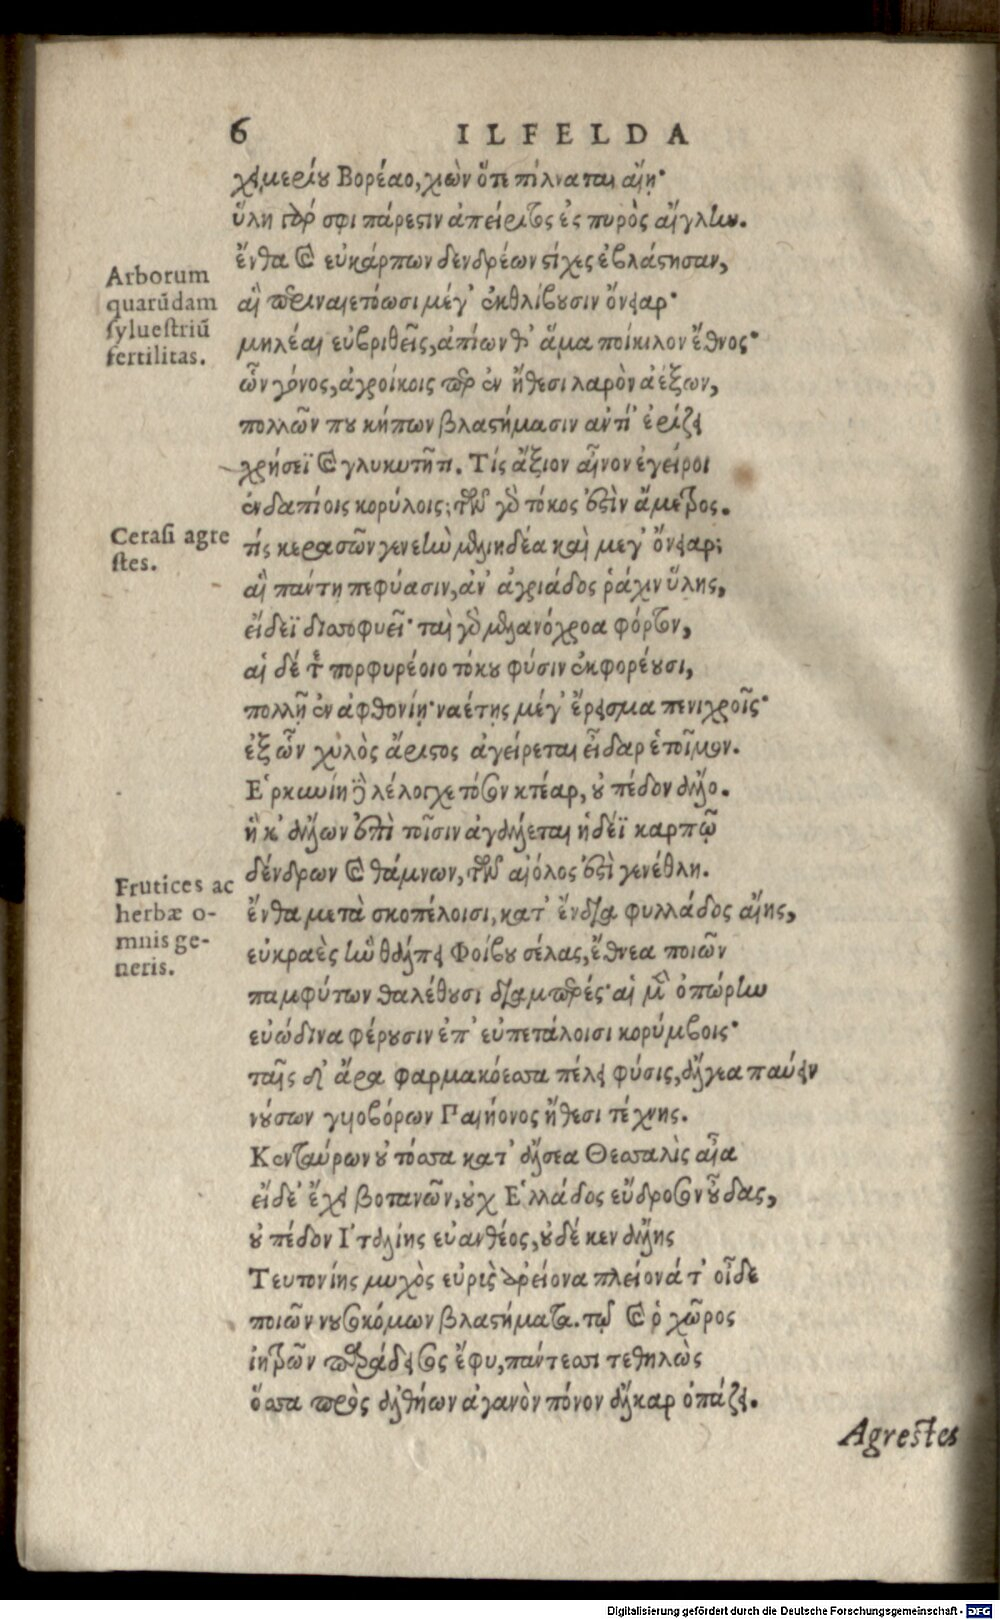 6 ILFELDA
χειμερίου Βορέαο, χιὼν ὅτε πίλναται αἴῃ·
ὕλη γάρ σφι πάρεστιν ἀπείριτος ἐς πυρὸς αἴγλην.
ἔνθα καὶ εὐκάρπων δενδρέων στίχες ἐβλάστησαν,
αἳ περιναιετόωσι μέγ' ἐκθλίβουσιν ὄνειαρ·
μηλέαι εὐβριθεῖς, ἀπίων θ' ἅμα ποίκιλον ἔθνος·
ὧν γόνος, ἀγροίκοις περ ἐν ἤθεσι λαρὸν ἀέξων,
πολλῶν που κήπων βλαστήμασιν ἀντί' ἐρίζει
χρήσεϊ καὶ γλυκυτῆτι. Τίς ἄξιον αἶνον ἐγείροι
ἐνδαπίοις κορύλοις; τῶν γὰρ τόκος ἐστὶν ἄμετρος.
τίς κερασῶν γενεὴν μελιηδέα καὶ μεγ' ὄνειαρ;
αἳ πάντη πεφύασιν, ἀν' ἀγριάδος ῥάχιν ὕλης,
εἴδεϊ δισσοφυεῖ· ταὶ γὰρ μελανόχροα φόρτον,
αἱ δέ τε πορφυρέοιο τόκου φύσιν ἐκφορέουσι,
πολλῇ ἐν ἀφθονίῃ· ναέτῃς μέγ' ἔρεισμα πενιχροῖς·
ἐξ ὧν χυλὸς ἄριστος ἀγείρεται εἶδαρ ἑτοῖμον.
Ἑρκυνίη δὲ λέλογχε τόσον κτέαρ, οὐ πέδον ἄλλο.
ἢ κ' ἄλλων ἐπὶ τοῖσιν ἀγάλλεται ἡδέϊ καρπῷ
δένδρων καὶ θάμνων, τῶν αἰόλος ἐστὶ γενέθλη.
ἔνθα μετὰ σκοπέλοισι, κατ' ἔνδια φυλλάδος αἴης,
εὐκραὲς ἣν θάλπει Φοίβου σέλας, ἔθνεα ποιῶν
παμφύτων θαλέθουσι διαμπερές· αἱ μὲν ὀπώρην
εὐώδινα φέρουσιν ἐπ' εὐπετάλοισι κορύμβοις·
ταῖς δ' ἄρα φαρμακόεσσα πέλει φύσις, ἄλγεα παύειν
νούσων γυιοβόρων Παιήονος ἤθεσι τέχνης.
Κενταύρων οὐ τόσσα κατ' ἄλσεα Θεσσαλὶς αἶα
εἴδε' ἔχει βοτανῶν, οὐχ Ἑλλάδος εὔδροσον οὖδας,
οὐ πέδον Ἰταλίης εὐανθέος, οὐδέ κεν ἄλλης
Τευτονίης μυχὸς εὐρὺς ἀρείονα πλείονά τ' οἶδε
ποιῶν νουσοκόμων βλαστήματα. τῷ καὶ ὁ χῶρος
ἰητρῶν παράδεισος ἔφυ, πάντεσσι τεθηλὼς
ὅσσα πρὸς ἀλθήων ἀγανὸν πόνον ἄλκαρ ὀπάζει.
Arborum
quarũdam
syluestriũ
fertilitas.
Cerasi agre
stes.
Frutices ac
herbæ o-
mnis ge-
neris.
Agrestes
Digitalisierung gefördert durch die Deutsche Forschungsgemeinschaft - DFG